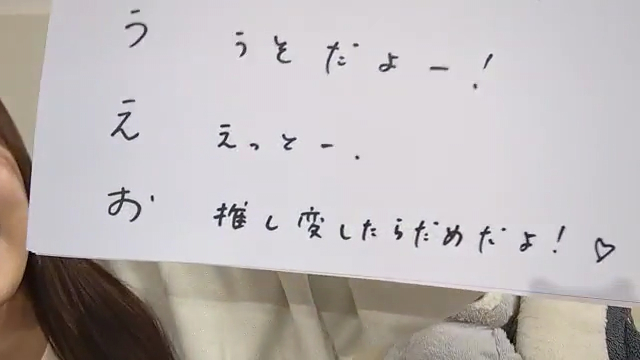 う うそだよー!
え えっとー.
お 推し変したらだめだよ!♡